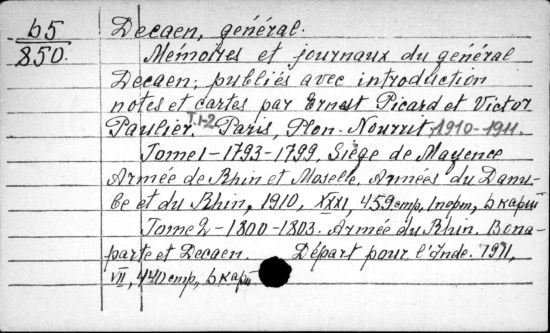 b5
850.
Decaen, général.
Mémoires et journaux du général
Decaen; publiés avec introduction
notes et cartes par Ernest Picard et Victor
Paulier. T.1-2 Paris, Plon-Nourrit, 1910-1911.
Tome 1 - 1793-1799. Siège de Mayence
Armée de Rhin et Moselle. Armées du Danu-
be et du Rhin, 1910, XXXI, 459 стр., 1 портр., 6 карт
Tome 2 - 1800-1803. Armée du Rhin. Bona-
parte et Decaen. Départ pour l'Inde. 1911,
VII, 440 стр., 6 карт